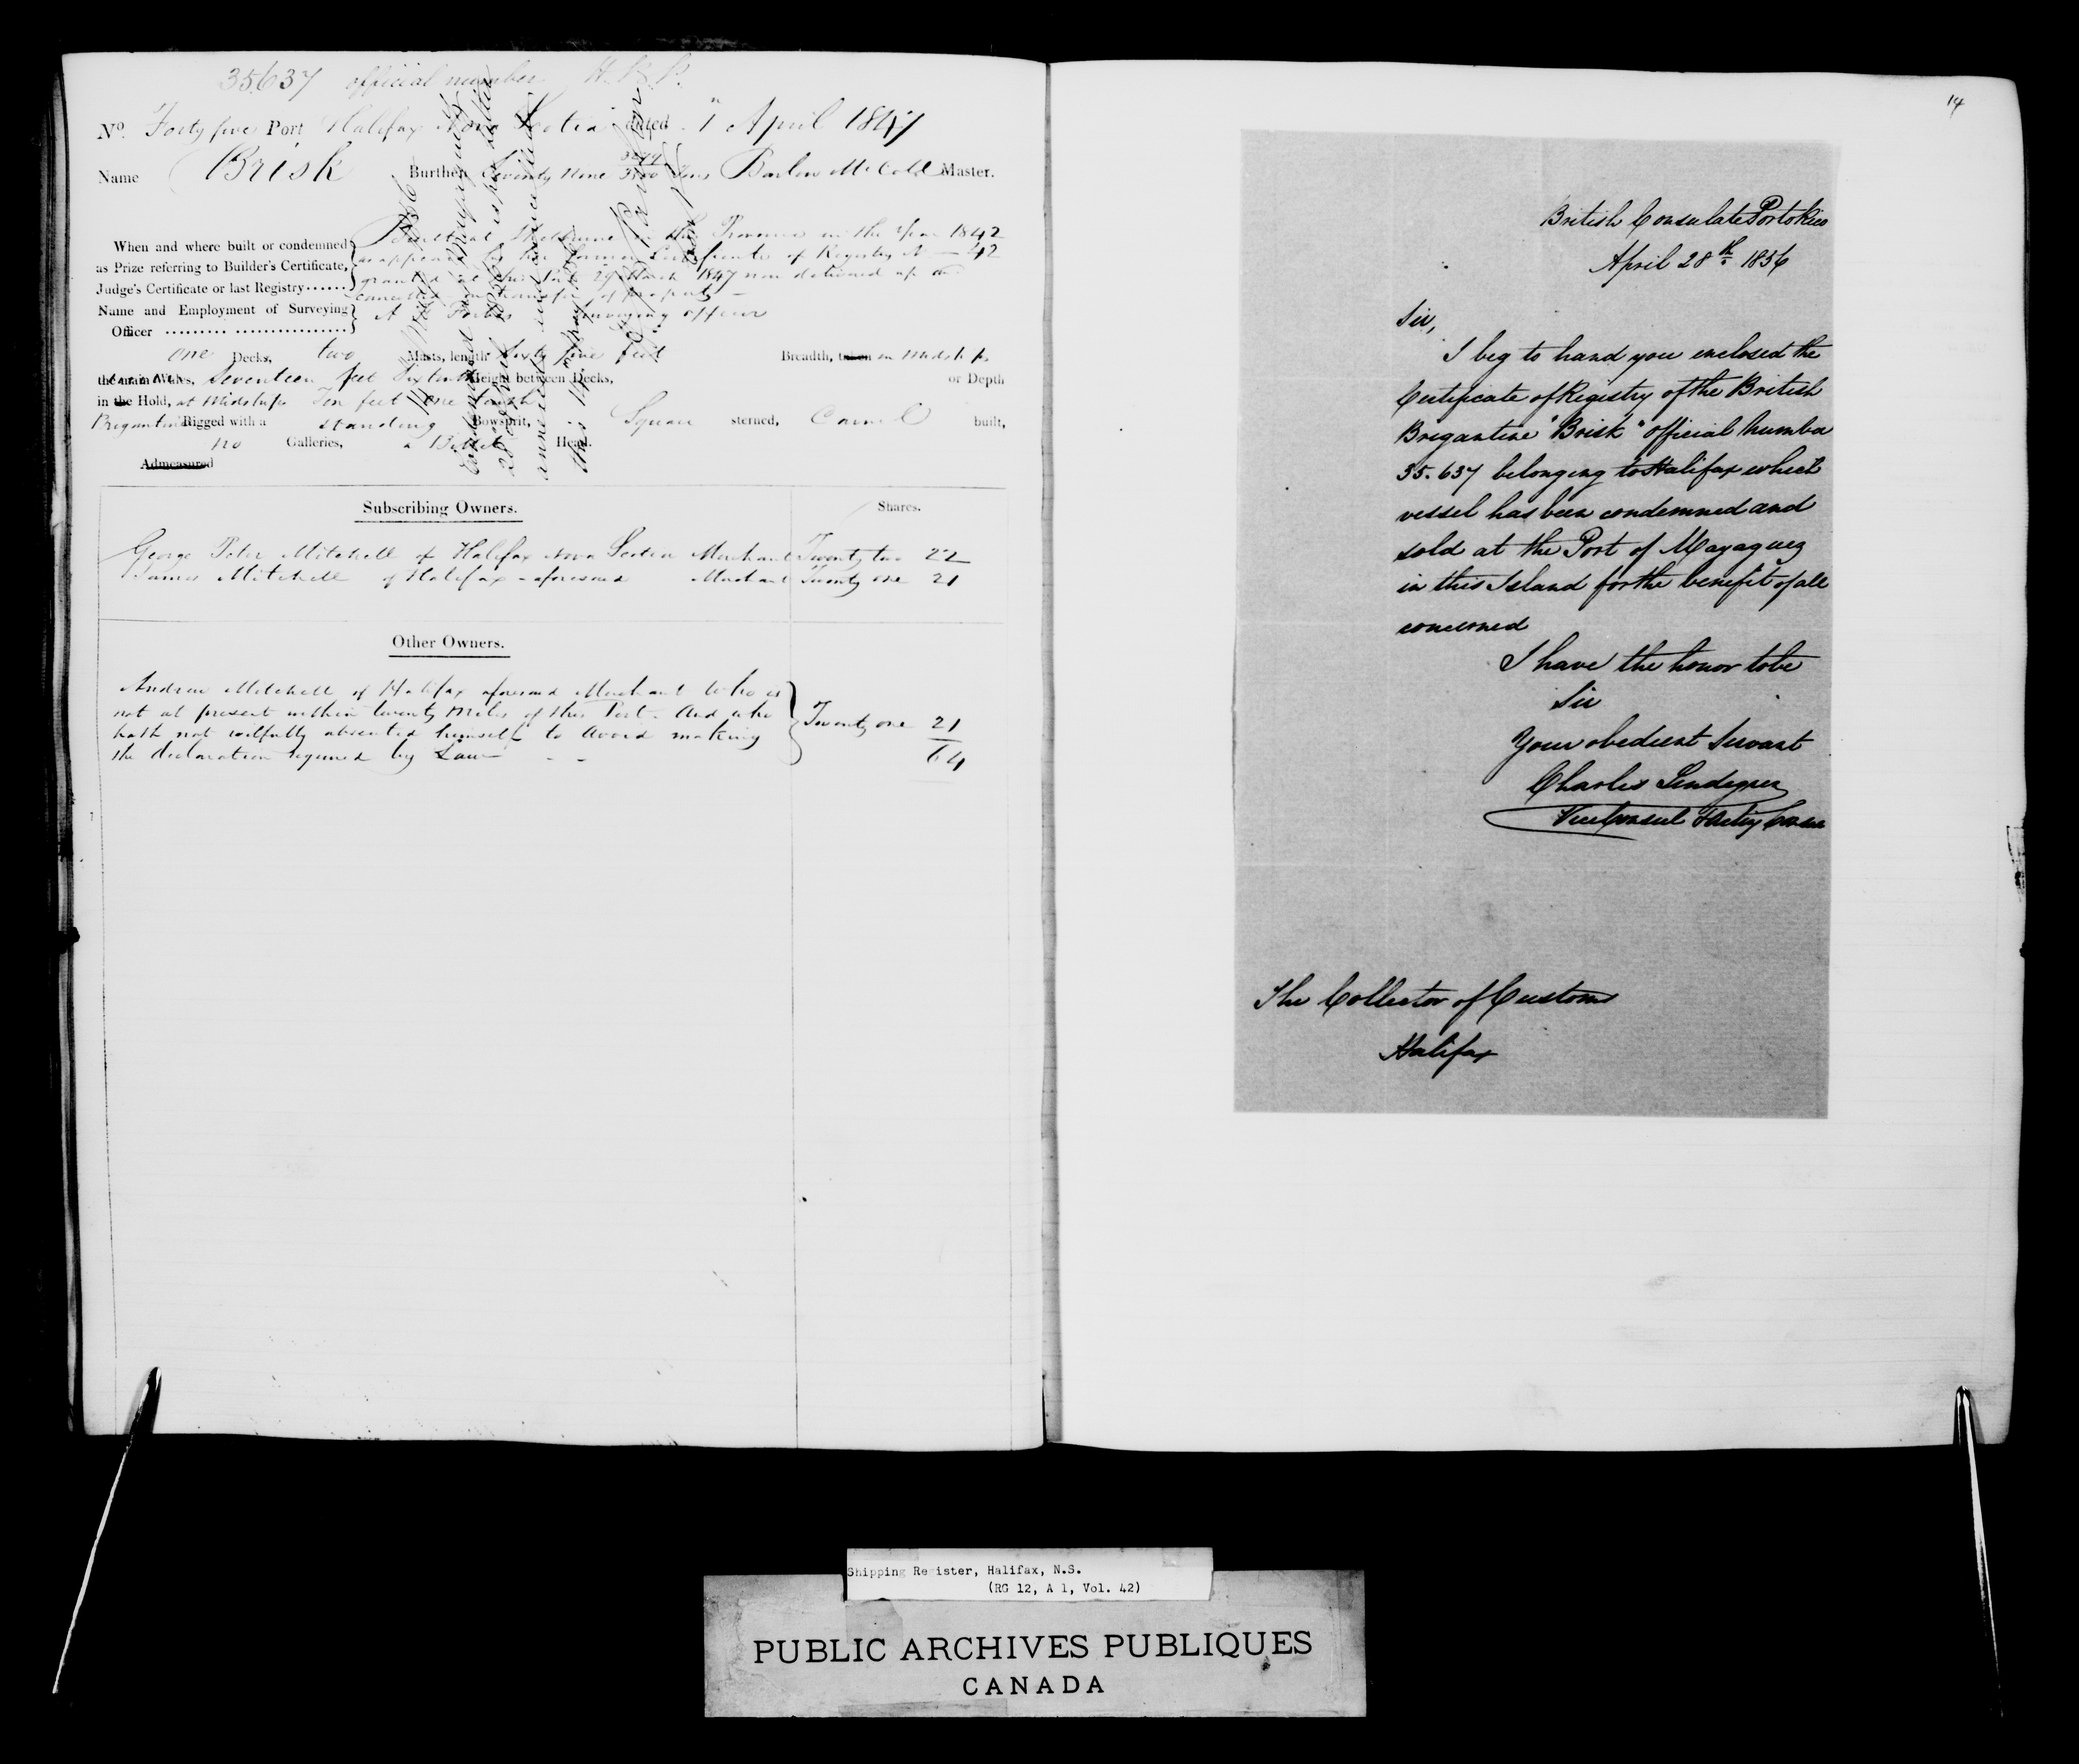 35637 official number H.R.P.
No. Forty five Port Halifax Nova Scotia dated 1st April 1847
Name Brisk Burthen Seventy Nine 3500 Tons Barlow McColl Master.
When and where built or condemned
as Prize referring to Builder's Certificate,
Judge's Certificate or last Registry......
Built at Shelburne in this Province in the Year 1842
as appears by the former Certificate of Registry No 42
granted at this Port 29 March 1847 now delivered up and
cancelled on transfer of property
Name and Employment of Surveying
Officer ......... ................
Surveying officer
one Decks, two Masts, length Sixty five feet Breadth, taken in Midships
the main Wales, Seventeen feet Six tenths Height between Decks, or Depth
in the Hold, at Midships Ten feet one tenth
Brigantine Rigged with a standing Bowsprit, Square sterned, Carvel built,
no Galleries, a Billet Head.
Admeasured
14 May 1856
Condemned at Mayaguez
28 April 1856 as per letter
annexed and cancelled
this 14 May 1856
Subscribing Owners. Shares.
George Peter Mitchell of Halifax Nova Scotia Merchant Twenty two 22
James Mitchell of Halifax aforesaid Merchant Twenty one 21
Other Owners.
Andrew Mitchell of Halifax aforesaid Merchant who is
not at present within twenty Miles of this Port. And who
hath not wilfully absented himself to avoid making
the declaration required by Law
Twenty one 21
64
14
British Consulate Porto Rico
April 28th 1856
Sir,
I beg to hand you enclosed the
Certificate of Registry of the British
Brigantine "Brisk" official number
35.637 belonging to Halifax which
vessel has been condemned and
sold at the Port of Mayaguez
in this Island for the benefit of all
concerned
I have the honor to be
Sir
Your obedient Servant
Charles Lindegren
Vice Consul &
The Collector of Customs
Halifax
Shipping Register, Halifax, N.S.
(RG 12, A 1, Vol. 42)
PUBLIC ARCHIVES PUBLIQUES
CANADA